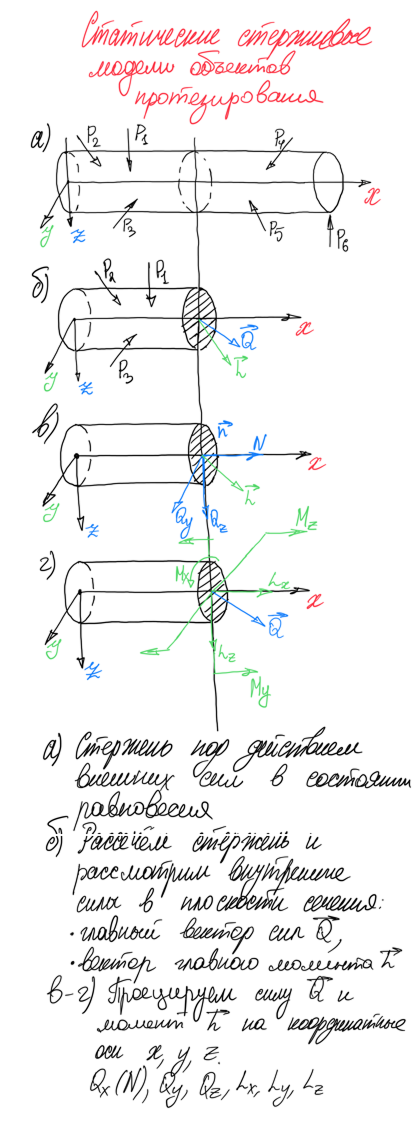 Статические стержневые
модели объектов
протезирования
а)
P₂
P₁
P₄
P₃
P₅
P₆
x
y
z
б)
P₂
P₁
P₃
Q⃗
L⃗
x
y
z
в)
n⃗
N
x
L⃗
Qy
Qz
y
z
г)
Mz
Mx
Lx
x
Q⃗
Lz
My
y
z
а) Стержень под действием
внешних сил в состоянии
равновесия
б) Рассечём стержень и
рассмотрим внутренние
силы в плоскости сечения:
·главный вектор сил Q⃗,
·вектор главного момента L⃗
в-г) Проецируем силу Q⃗ и
момент L⃗ на координатные
оси x, y, z.
Qx(N), Qy, Qz, Lx, Ly, Lz